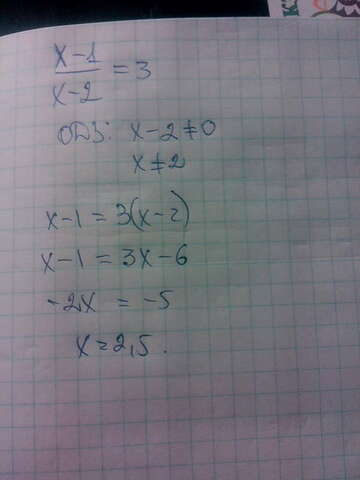 x-1
/
x-2 = 3
ОДЗ: x-2≠0
x≠2
x-1 = 3(x-2)
x-1 = 3x-6
-2x = -5
x=2,5.